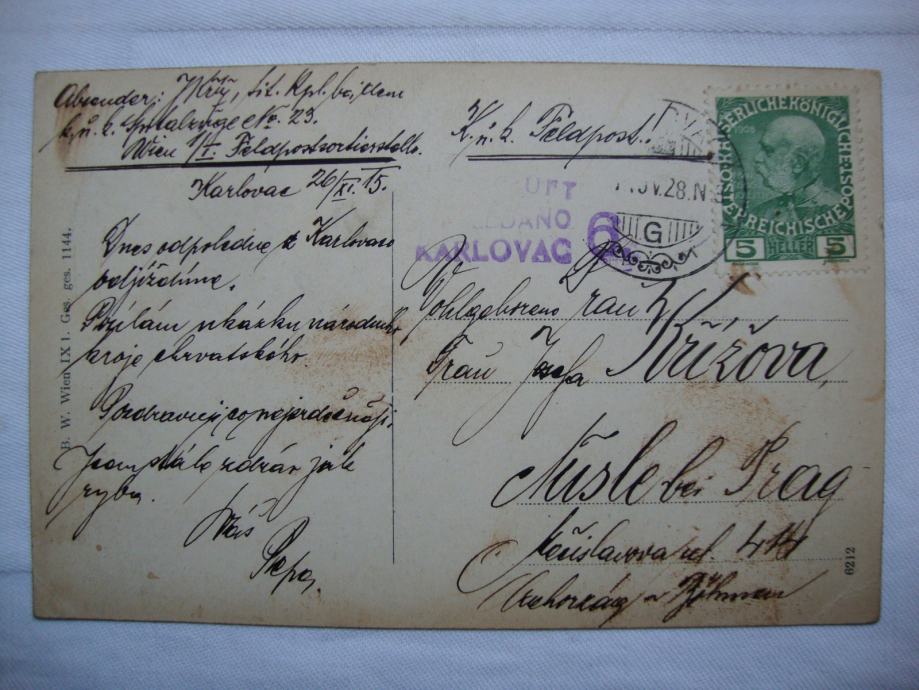 Absender: Kříž, tit. Kpl. bei dem
k. u. k. Spitalzuge No. 23.
Wien 1/I. Feldpostsortierstelle
Karlovac 26/XI. 15.
Dnes odpoledne z Karlovace
odjíždíme.
Posílám ukázku národního
kroje chrvatského.
Pozdravuji co nejsrdečněji.
Jsem stále zdráv jak
ryba.
Váš
Pepa
B. W. Wien IX 1. Ges. ges. 1144.
K. u. k. Feldpost!
KARLOVAC 6
V.28.N
G
1908
KAISERLICHE KÖNIGLICHE ÖSTERREICHISCHE POST
5 HELLER 5
Wohlgeboren Frau
Frau Josefa Křížova,
Nusle bei Prag
ul. 414
Böhmen
6212